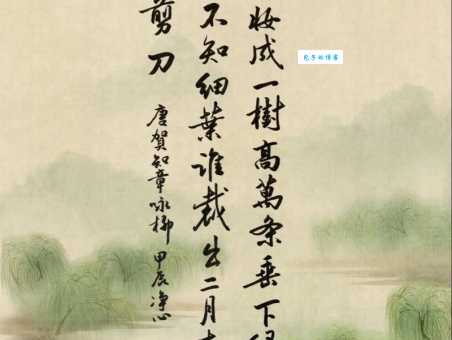 妝成一樹高萬条垂下
不知细葉谁裁出二月
剪刀
唐賀知章咏柳 甲辰净心